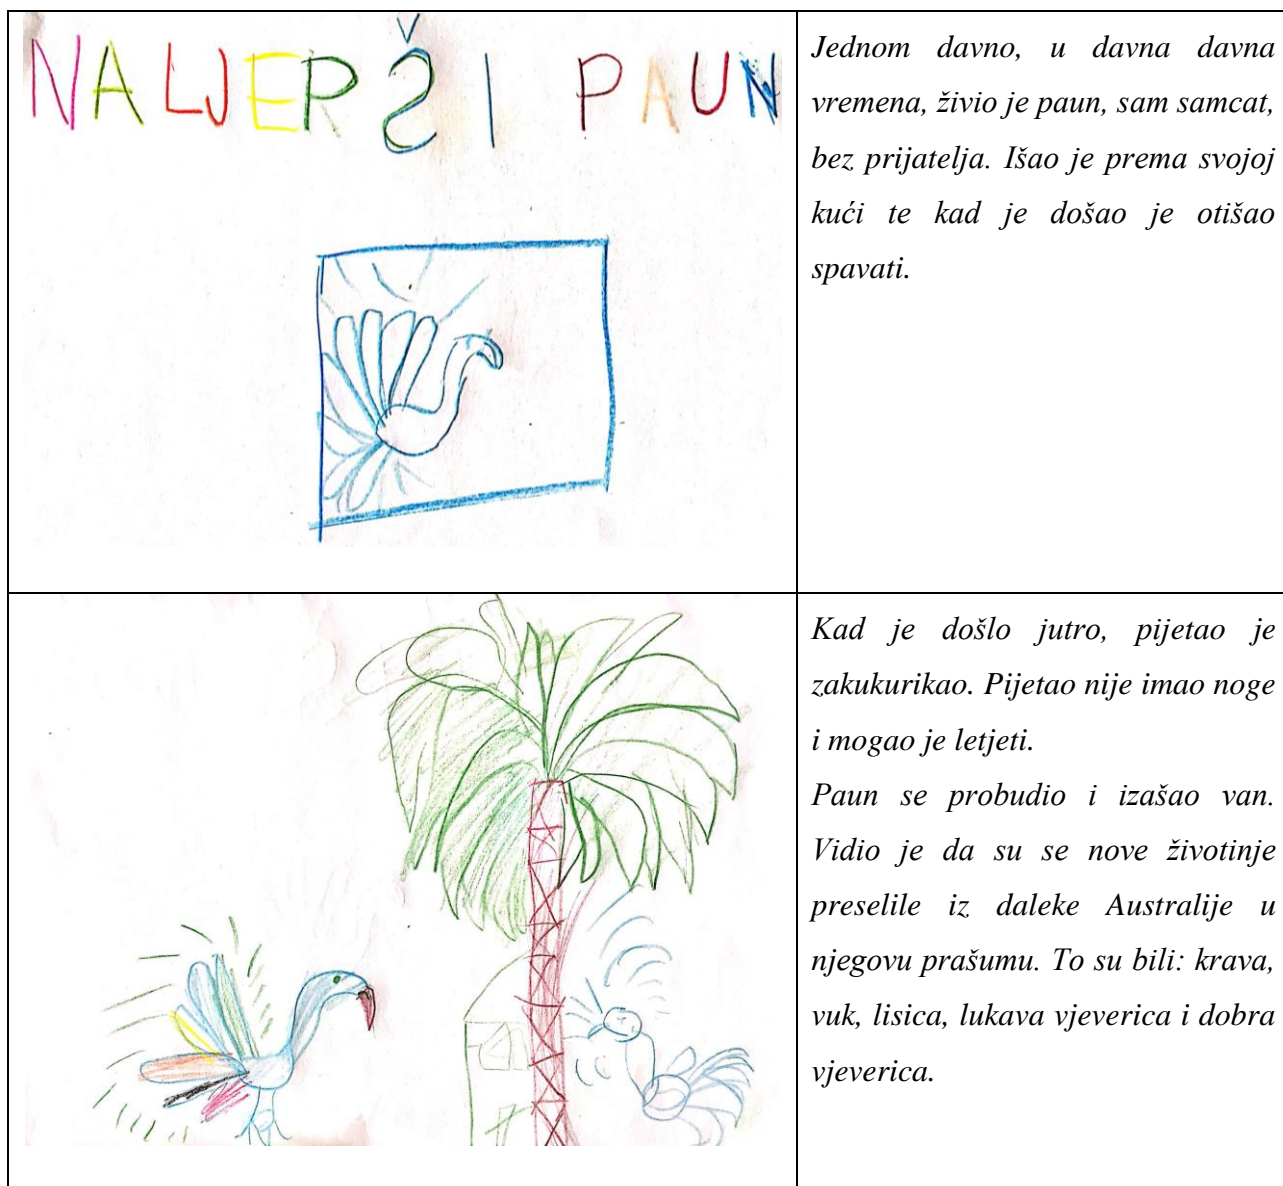 NALJEPŠI PAUN
Jednom davno, u davna davna
vremena, živio je paun, sam samcat,
bez prijatelja. Išao je prema svojoj
kući te kad je došao je otišao
spavati.
Kad je došlo jutro, pijetao je
zakukurikao. Pijetao nije imao noge
i mogao je letjeti.
Paun se probudio i izašao van.
Vidio je da su se nove životinje
preselile iz daleke Australije u
njegovu prašumu. To su bili: krava,
vuk, lisica, lukava vjeverica i dobra
vjeverica.